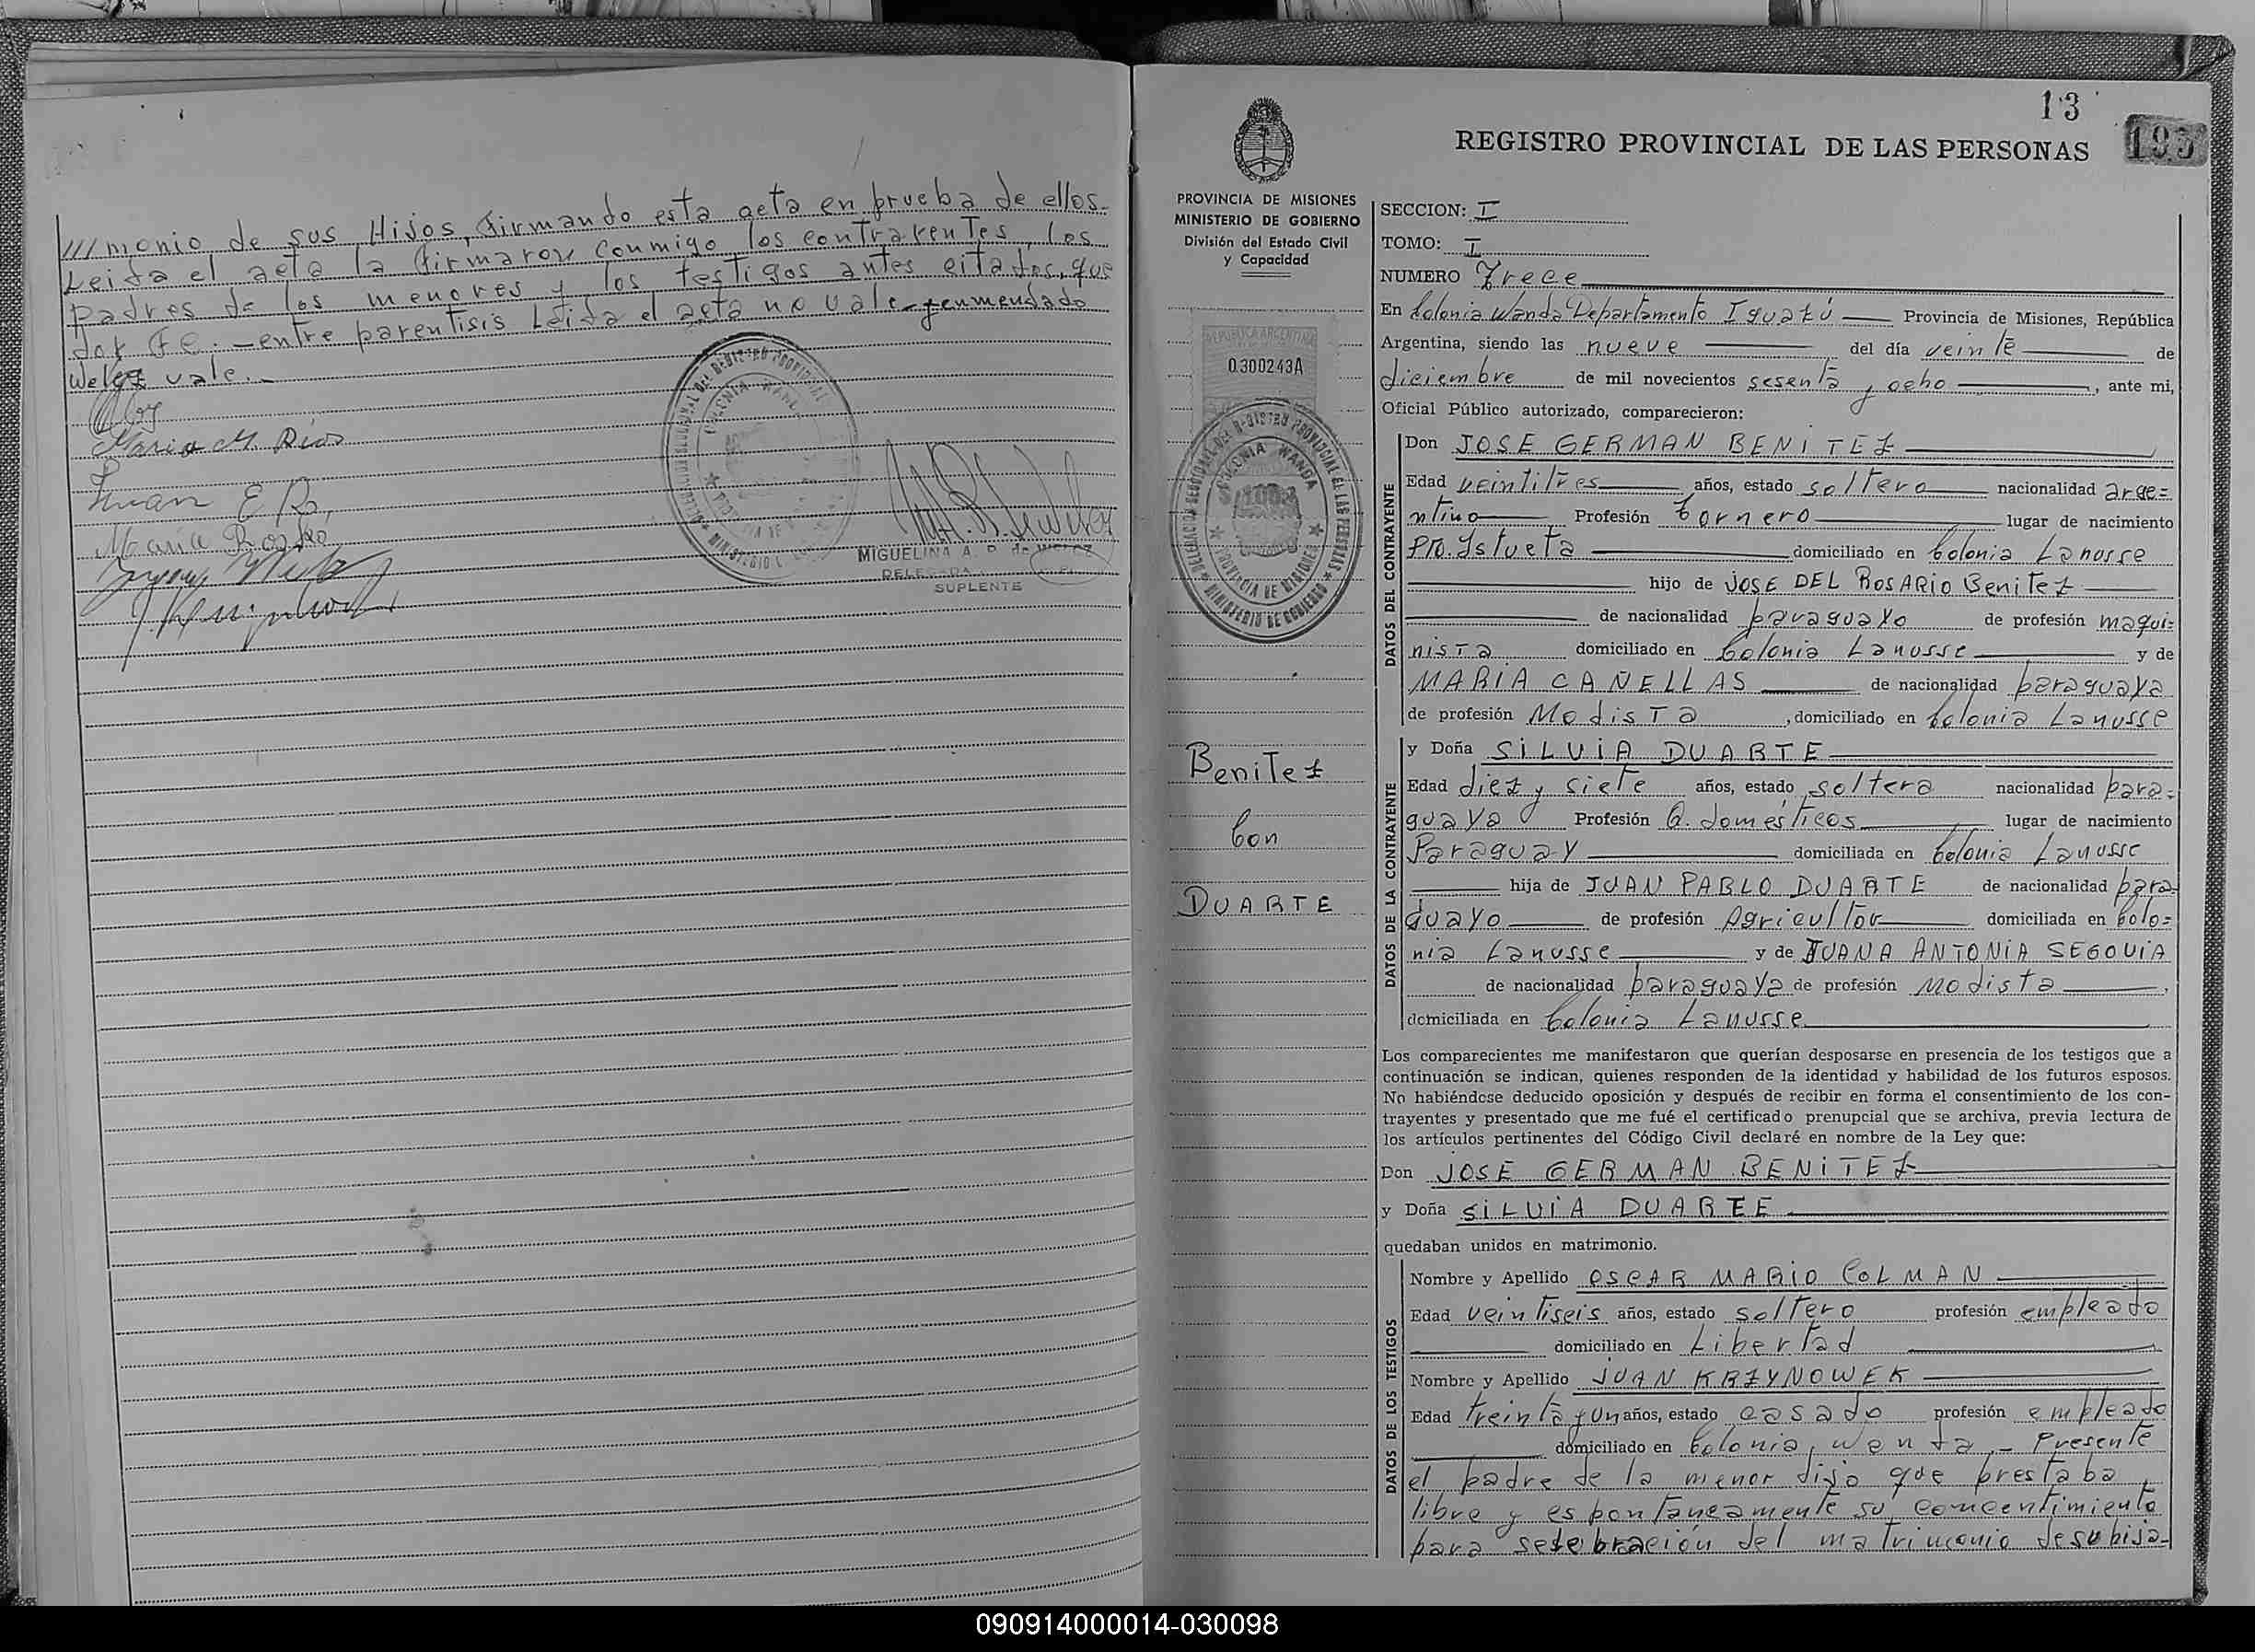 ///monio de sus Hijos, firmando esta acta en prueba de ellos.
Leida el acta la firmaron conmigo los contrarentes, los
padres de los menores y los testigos antes citados, que
doy fe. — entre parentisis Leida el acta no vale - enmendado
Welez vale. -
Maria M. Rios
Juan E
Maria
MIGUELINA A. P. de WELEZ
DELEGADA
SUPLENTE
13
195
REGISTRO PROVINCIAL DE LAS PERSONAS
PROVINCIA DE MISIONES
MINISTERIO DE GOBIERNO
División del Estado Civil
y Capacidad
REPUBLICA ARGENTINA
0.300243A
DELEGACION SECCIONAL DEL REGISTRO PROVINCIAL DE LAS PERSONAS
COLONIA WANDA
PROVINCIA DE MISIONES
MINISTERIO DE GOBIERNO
Benitez
Con
DUARTE
SECCION: I
TOMO: I
NUMERO Trece
En Colonia Wanda Departamento Iguazú Provincia de Misiones, República
Argentina, siendo las nueve del día veinte de
diciembre de mil novecientos sesenta y ocho, ante mi,
Oficial Público autorizado, comparecieron:
DATOS DEL CONTRAYENTE
Don JOSE GERMAN BENITEZ
Edad veintitres años, estado soltero nacionalidad arge=
ntino Profesión Tornero lugar de nacimiento
Pto. Istueta domiciliado en Colonia Lanusse
hijo de JOSE DEL ROSARIO Benitez
de nacionalidad paraguayo de profesión maqui=
nista domiciliado en Colonia Lanusse y de
MARIA CAÑELLAS de nacionalidad paraguaya
de profesión Modista, domiciliado en Colonia Lanusse
DATOS DE LA CONTRAYENTE
y Doña SILVIA DUARTE
Edad diez y siete años, estado soltera nacionalidad para=
guaya Profesión Q. domésticos lugar de nacimiento
Paraguay domiciliada en Colonia Lanusse
hija de JUAN PABLO DUARTE de nacionalidad para=
guayo de profesión Agricultor domiciliada en Colo=
nia Lanusse y de JUANA ANTONIA SEGOVIA
de nacionalidad paraguaya de profesión Modista,
domiciliada en Colonia Lanusse
Los comparecientes me manifestaron que querían desposarse en presencia de los testigos que a
continuación se indican, quienes responden de la identidad y habilidad de los futuros esposos.
No habiéndose deducido oposición y después de recibir en forma el consentimiento de los con-
trayentes y presentado que me fué el certificado prenupcial que se archiva, previa lectura de
los artículos pertinentes del Código Civil declaré en nombre de la Ley que:
Don JOSE GERMAN BENITEZ
y Doña SILVIA DUARTE
quedaban unidos en matrimonio.
DATOS DE LOS TESTIGOS
Nombre y Apellido OSCAR MARIO COLMAN
Edad veintiseis años, estado soltero profesión empleado
domiciliado en Libertad
Nombre y Apellido JUAN KRZYNOWEK
Edad treinta y un años, estado casado profesión empleado
domiciliado en Colonia, Wanda. - Presente
el padre de la menor dijo que prestaba
libre y espontaneamente su concentimiento
para selebración del matrimonio de su hija-
090914000014-030098